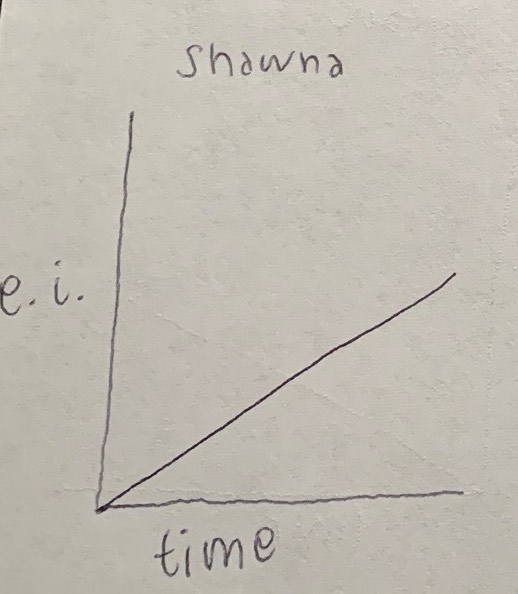 Shawna
e.i.
time